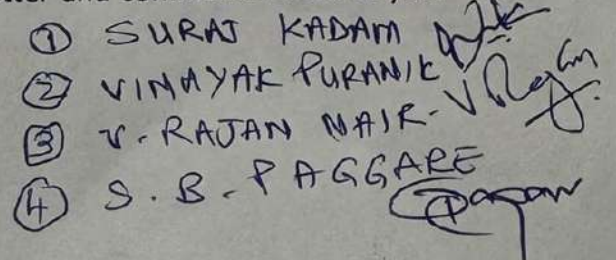 ① SURAJ KADAM
② VINAYAK PURANIK
③ V. RAJAN NAIR-
④ S. B. PAGGARE